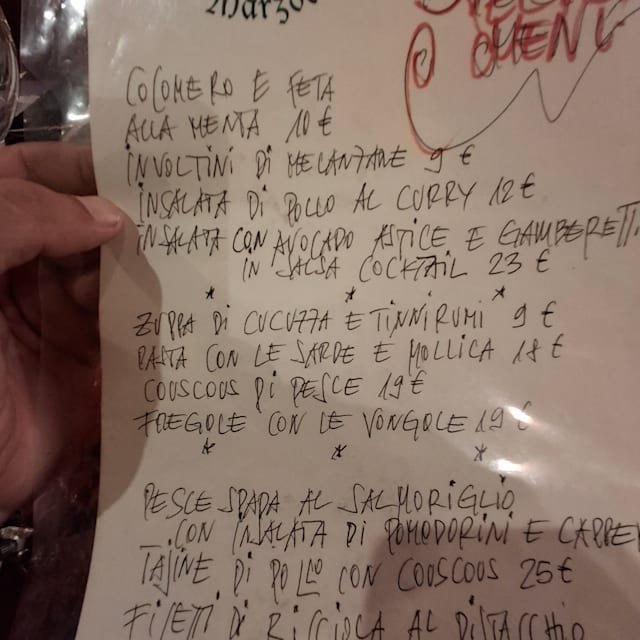 COCOMERO E FETA
ALLA MENTA 10 €
INVOLTINI DI MELANZANE 9 €
INSALATA DI POLLO AL CURRY 12 €
INSALATA CON AVOCADO ASTICE E GAMBERETTI
IN SALSA COCKTAIL 23 €
* * *
ZUPPA DI CUCUZZA E TINNIRUMI 9 €
PASTA CON LE SARDE E MOLLICA 18 €
COUSCOUS DI PESCE 19 €
FREGOLE CON LE VONGOLE 19 €
* * *
PESCE SPADA AL SALMORIGLIO
CON INSALATA DI POMODORINI E CAPPERI
TAJINE DI POLLO CON COUSCOUS 25 €
FILETTI DI RICCIOLA AL PISTACCHIO